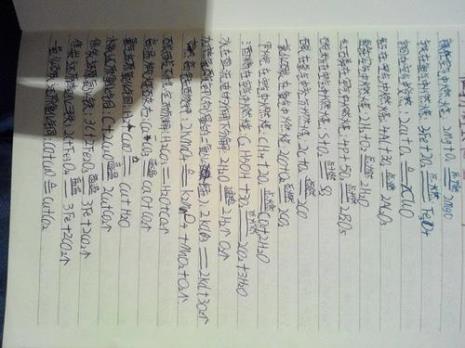 镁在空气中燃烧：2Mg+O₂ 点燃 2MgO
铁在氧气中燃烧：3Fe+2O₂ 点燃 Fe₃O₄
铜在空气中受热：2Cu+O₂ △ 2CuO
铝在空气中燃烧：4Al+3O₂ 点燃 2Al₂O₃
氢气在空气中燃烧：2H₂+O₂ 点燃 2H₂O
红磷在空气中燃烧：4P+5O₂ 点燃 2P₂O₅
硫粉在空气中燃烧：S+O₂ 点燃 SO₂
碳在氧气中充分燃烧：C+O₂ 点燃
2C+O₂ 点燃 2CO
一氧化碳在氧气中燃烧：2CO+O₂ 点燃 2CO₂
甲烷在空气中燃烧：CH₄+2O₂ 点燃 CO₂+2H₂O
酒精在空气中燃烧：C₂H₅OH+3O₂ 点燃 2CO₂+3H₂O
水在直流电的作用下分解：2H₂O 通电 2H₂↑ O₂↑
2KClO₃ 2KCl+3O₂↑
加热高锰酸钾：2KMnO₄ △ K₂MnO₄+MnO₂+O₂↑
碳酸不稳定而分解：H₂CO₃ H₂O+CO₂↑
高温煅烧石灰石：CaCO₃ 高温 CaO+CO₂↑
氢气还原氧化铜：H₂+CuO △ Cu+H₂O
木炭还原氧化铜：C+2CuO 高温 2Cu+CO₂↑
焦炭还原氧化铁：3C+2Fe₂O₃ 高温 4Fe+3CO₂↑
焦炭还原四氧化三铁：2C+Fe₃O₄ 高温 3Fe+2CO₂↑
一氧化碳还原氧化铜：CO+CuO △ Cu+CO₂